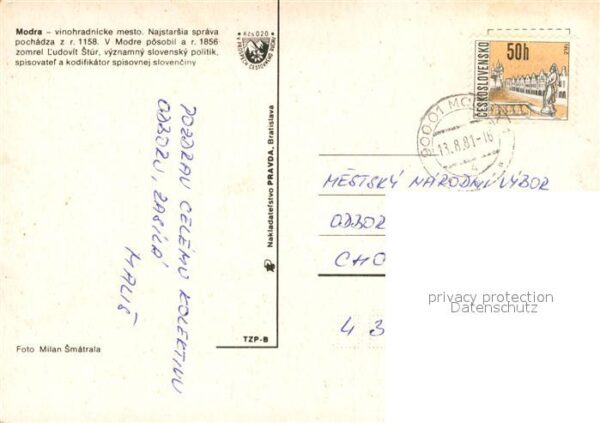 Modra – vinohradnícke mesto. Najstaršia správa
pochádza z r. 1158. V Modre pôsobil a r. 1856
zomrel Ľudovít Štúr, významný slovenský politik,
spisovateľ a kodifikátor spisovnej slovenčiny
Kčs 020
POZDRAV CELÉMU KOLEKTIVU
ODBORU, ZASÍLÁ
MALIŠ
Foto Milan Šmátrala
Nakladateľstvo PRAVDA, Bratislava
TZP-B
ČESKOSLOVENSKO
50h
900 01
13.8.81-16
MĚSTSKÝ NÁRODNÍ VÝBOR
ODBOR
CHO
43
privacy protection
Datenschutz